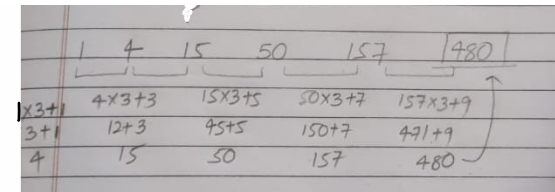 1 4 15 50 157 480
1×3+1 4×3+3 15×3+5 50×3+7 157×3+9
3+1 12+3 45+5 150+7 471+9
4 15 50 157 480